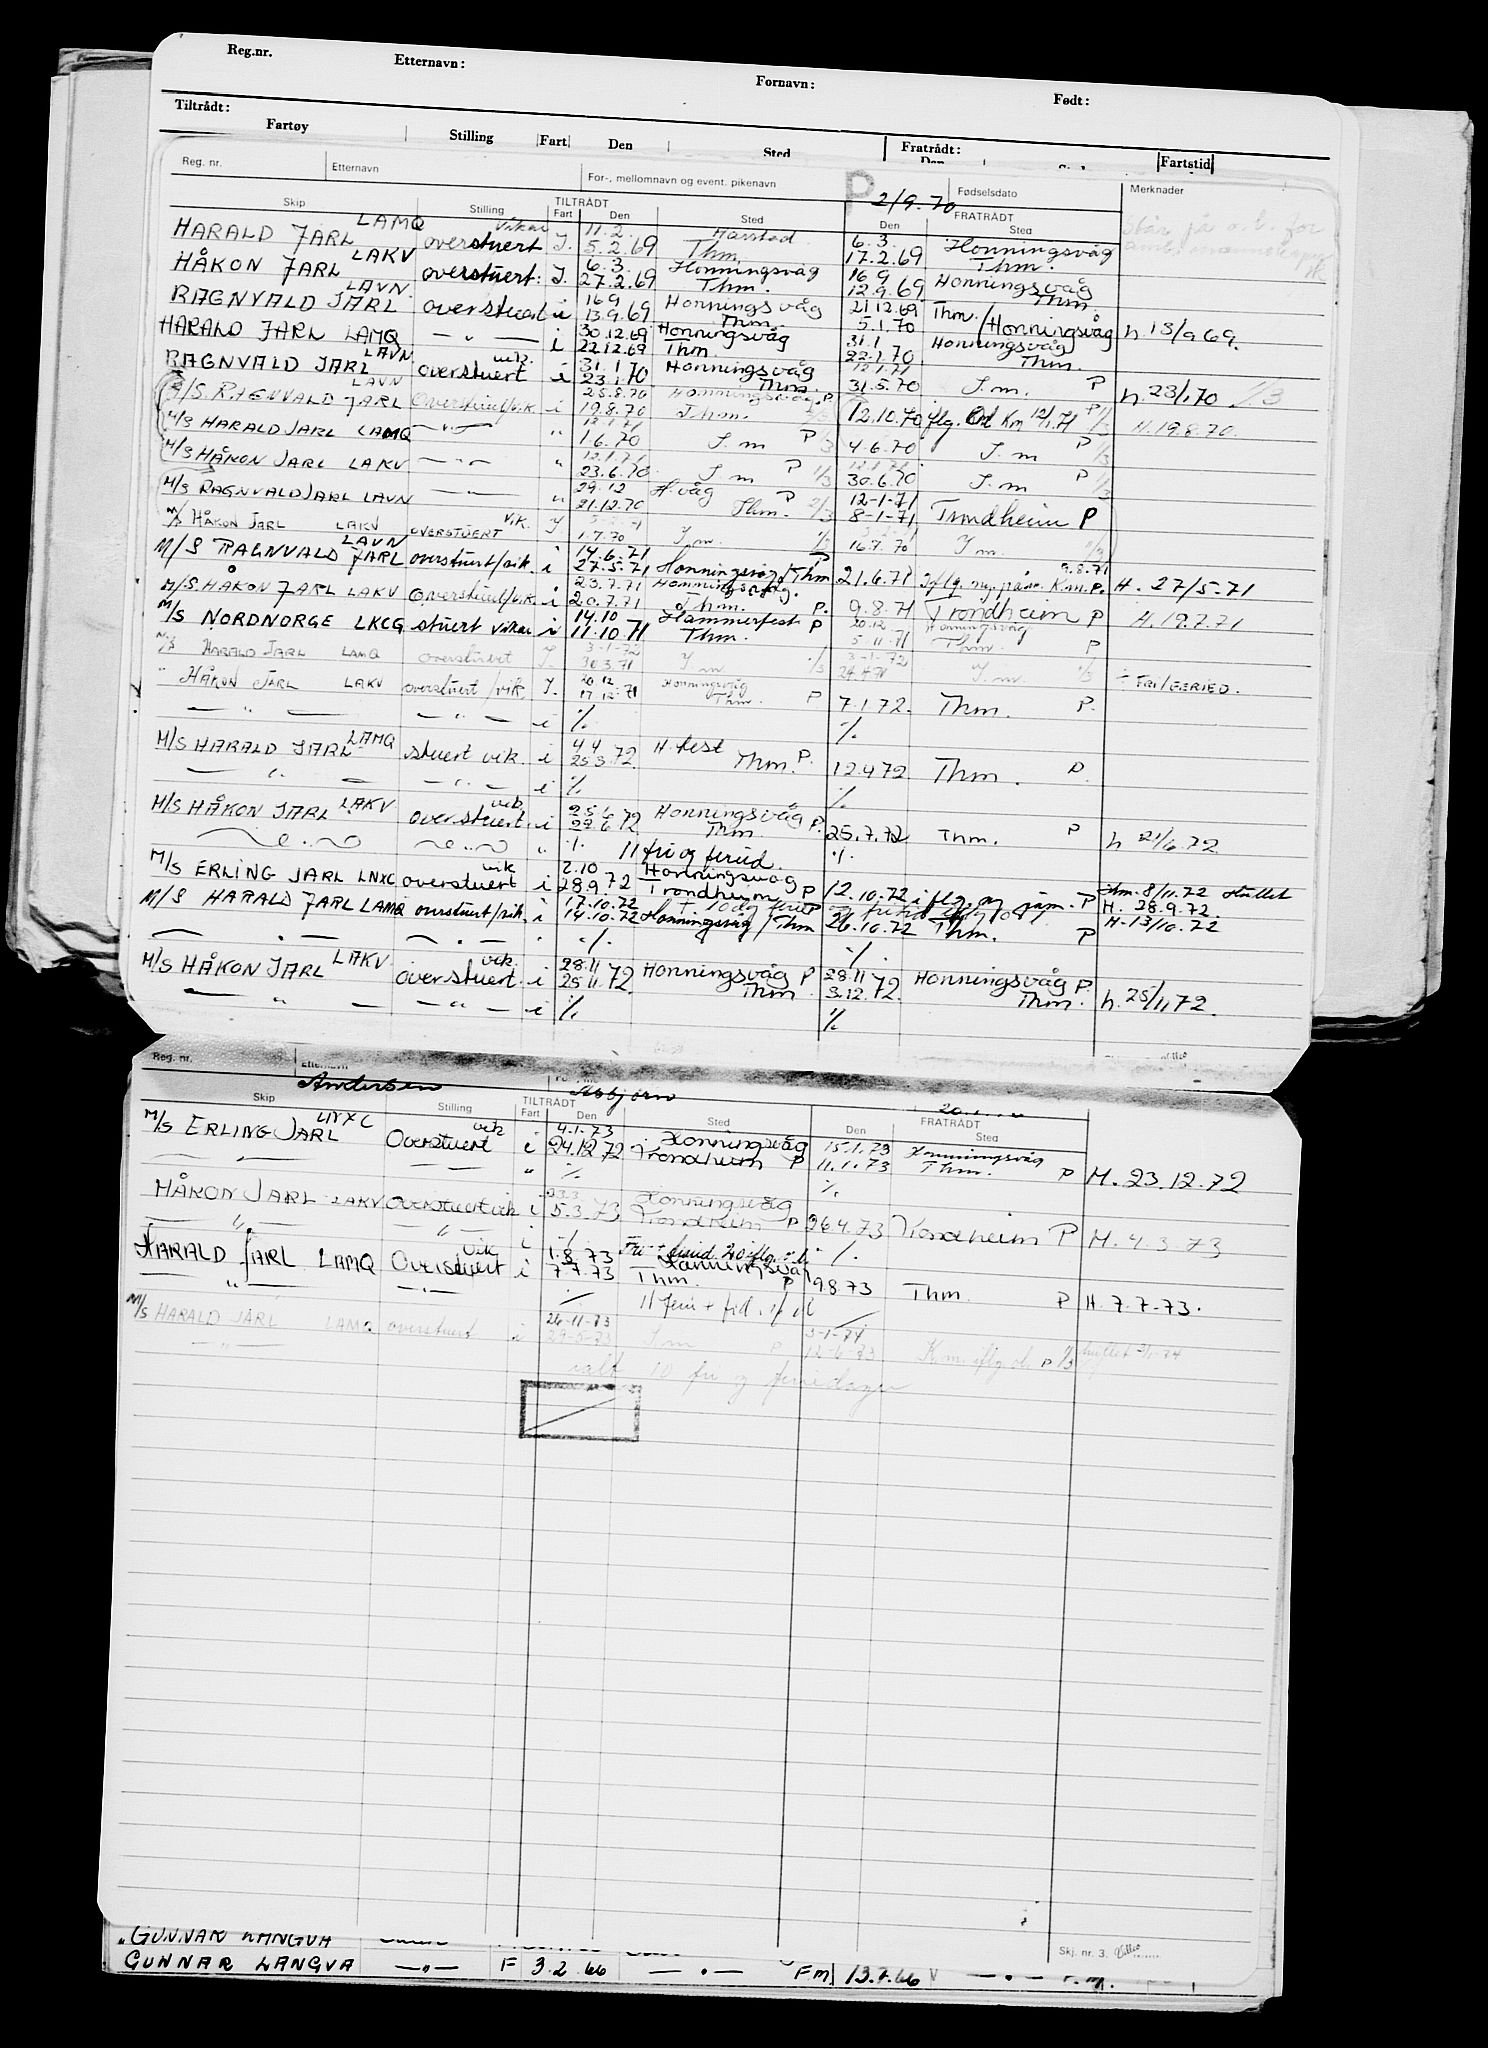 Reg.nr. Etternavn: Fornavn: Født:
Tiltrådt: Fratrådt:
Fartøy Stilling Fart Den Sted Den Fartstid
Reg. nr. Etternavn For-, mellomnavn og event. pikenavn Fødselsdato Merknader
P 2/9.70
TILTRÅDT FRATRÅDT
Skip Stilling Fart Den Sted Den Sted
LAMQ Vikar 11.2. Harstad 6.3.
HARALD JARL overstuert J. 5.2.69 Thm. 17.2.69 Honningsvåg Thm.
LAKV 6.3. Honningsvåg 16.9
HÅKON JARL overstuert: J. 27.2.69 Thm. 12.9.69 Honningsvåg Thm.
LAVN 16.9 Honningsvåg 21.12.69 Thm.
RAGNVALD JARL overstuert i 13.9.69 Thm. 5.1.70 /Honningsvåg h. 13/9 69.
30.12.69 Honningsvåg 31.1 Honningsvåg
HARALD JARL LAMQ — " — i 22.12.69 Thm. 22.1.70 Thm.
LAVN vik. 31.1 Honningsvåg
RAGNVALD JARL overstuert i 23.1.70 Thm. 31.5.70 I.m. P h. 23/1.70
LAVN 25.8.70 Honningsvåg P
M/S RAGNVALD JARL Overstuert/vik. i 19.8.70 Thm. 12.10.70 iflg. Km 12/1.71 H. 19.8.70.
M/S HARALD JARL LAMQ — " — " 1.6.70 I.m P 1/3 4.6.70 I.m P 1/3
M/S HÅKON JARL LAKV — " — " 23.6.70 I.m P 1/3 30.6.70 I.m P 1/3
29.12 H.våg P 12-1-71
M/S RAGNVALD JARL LAVN — " — " 21.12.70 Thm. 2/3 8-1-71 Trondheim P
M/S HÅKON JARL LAKV OVERSTUERT VIK. J 1.7.70 I.m. 16.7.70 I.m.
LAVN 14.6.71 9.8.71
M/S RAGNVALD JARL overstuert/vik. i 27.5.71 Honningsvåg/Thm 21.6.71 Iflg. Km. P. H. 27/5-71
23.7.71 Honningsvåg.
M/S HÅKON JARL LAKV Overstuert/vik. i 20.7.71 Thm. P. 9.8.71 Trondheim P H. 19.7.71
14.10 Hammerfest P 20.12 Honningsvåg
M/S NORDNORGE LKCG stuert vikar i 11.10.71 Thm. 5.11.71 Thm. P
3-1-72 3-1-72
M/S HARALD JARL LAMQ overstuert J. 30.3.71 I m 1/3 24.4.71 I.m. 1/3 ÷ FRI/FERIED.
20.12 Honningsvåg
" HÅKON JARL LAKV overstuert/vik. J. 17.12.71 Thm. P 7.1.72. Thm. P.
— " — — " — i % %
LAMQ 4.4 H.fest
M/S HARALD JARL stuert vik. i 25.3.72. Thm. P. 12.4.72 Thm. P.
— " — — " — i % %
LAKV vik. 25.6 Honningsvåg P.
M/S HÅKON JARL overstuert. i 22.6.72 Thm. 25.7.72 Thm. P h 21/6.72
" % 11 fri og feried. %
vik 2.10 Honningsvåg
M/S ERLING JARL LNXC overstuert i 28.9.72 Trondheim P 12.10.72 iflg. ny påm. P thm. 8/11.72 sluttet
H. 28.9.72.
17.10.72 + 10 dg
M/S HARALD JARL LAMQ overstuert/vik. i 14.10.72 Honningsvåg/Thm 26.10.72 Thm. P H. 13/10.72
— " — — " — i % %
LAKV vik. 28.11 Honningsvåg P 28.11 Honningsvåg P.
M/S HÅKON JARL overstuert. i 25.11.72 Thm 3.12.72. Thm. h. 25/11,72.
— " — — " — i % %
Reg. nr. Etternavn
Andersen Asbjørn
TILTRÅDT FRATRÅDT
Skip Stilling Fart Den Sted Den Sted
LNXC vik 4.1.73 Honningsvåg 15.1.73 Honningsvåg
M/S ERLING JARL Overstuert i 24.12.72 Trondheim P 11.1.73 Thm. P H. 23.12.72
— " — — — " % %
23.3 Honningsvåg
HÅKON JARL LAKV Overstuert vik i 5.3.73 Trondheim P 26.4.73 Trondheim P H. 4.3.73
— " — — " — i % %
Vik 1.8.73 Honningsvåg
HARALD JARL LAMQ Overstuert i 7.7.73 Thm. P 9.8.73 Thm. P H. 7.7.73.
— " — — " — % 11 ferie +
26-11-73 3-1-74
M/S HARALD JARL LAMQ overstuert i 29-5-73 I m P 12-6-73 Km. iflg. P 1/3
— " — ialt 10 fri og feriedager
Skj. nr. 3.
" GUNNAR LANGVA
GUNNAR LANGVA — " — F 3.2.66 — " — Fm 13.7.66 V — " — F.m.